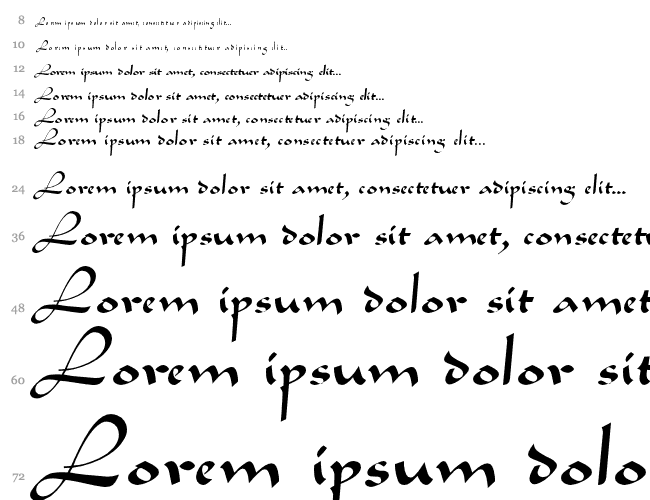 8 Lorem ipsum dolor sit amet, consectetuer adipiscing elit...
10 Lorem ipsum dolor sit amet, consectetuer adipiscing elit...
12 Lorem ipsum dolor sit amet, consectetuer adipiscing elit...
14 Lorem ipsum dolor sit amet, consectetuer adipiscing elit...
16 Lorem ipsum dolor sit amet, consectetuer adipiscing elit...
18 Lorem ipsum dolor sit amet, consectetuer adipiscing elit...
24 Lorem ipsum dolor sit amet, consectetuer adipiscing elit...
36 Lorem ipsum dolor sit amet, consectetu
48 Lorem ipsum dolor sit amet
60 Lorem ipsum dolor sit
72 Lorem ipsum dolo